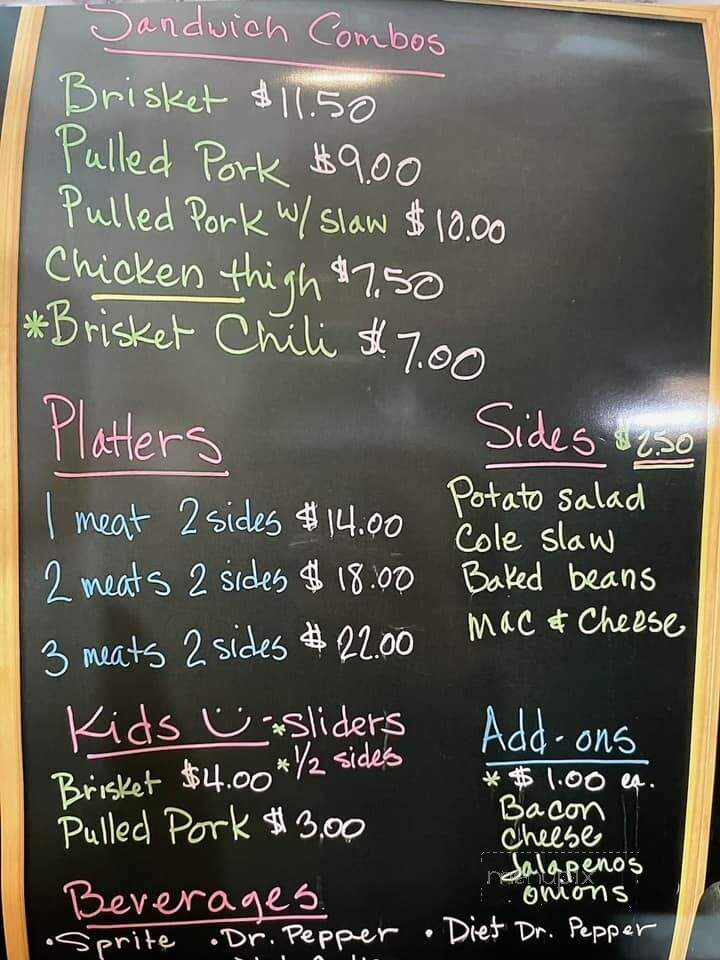 Sandwich Combos
Brisket $11.50
Pulled Pork $9.00
Pulled Pork w/ slaw $10.00
Chicken thigh $7.50
*Brisket Chili $7.00
Platters
1 meat 2 sides $14.00
2 meats 2 sides $18.00
3 meats 2 sides $22.00
Sides $2.50
Potato salad
Cole slaw
Baked beans
Mac & Cheese
Kids - *sliders
*1/2 sides
Brisket $4.00
Pulled Pork $3.00
Add-ons
* $1.00 ea.
Bacon
Cheese
Jalapenos
onions
menupix
Beverages
•Sprite •Dr. Pepper •Diet Dr. Pepper